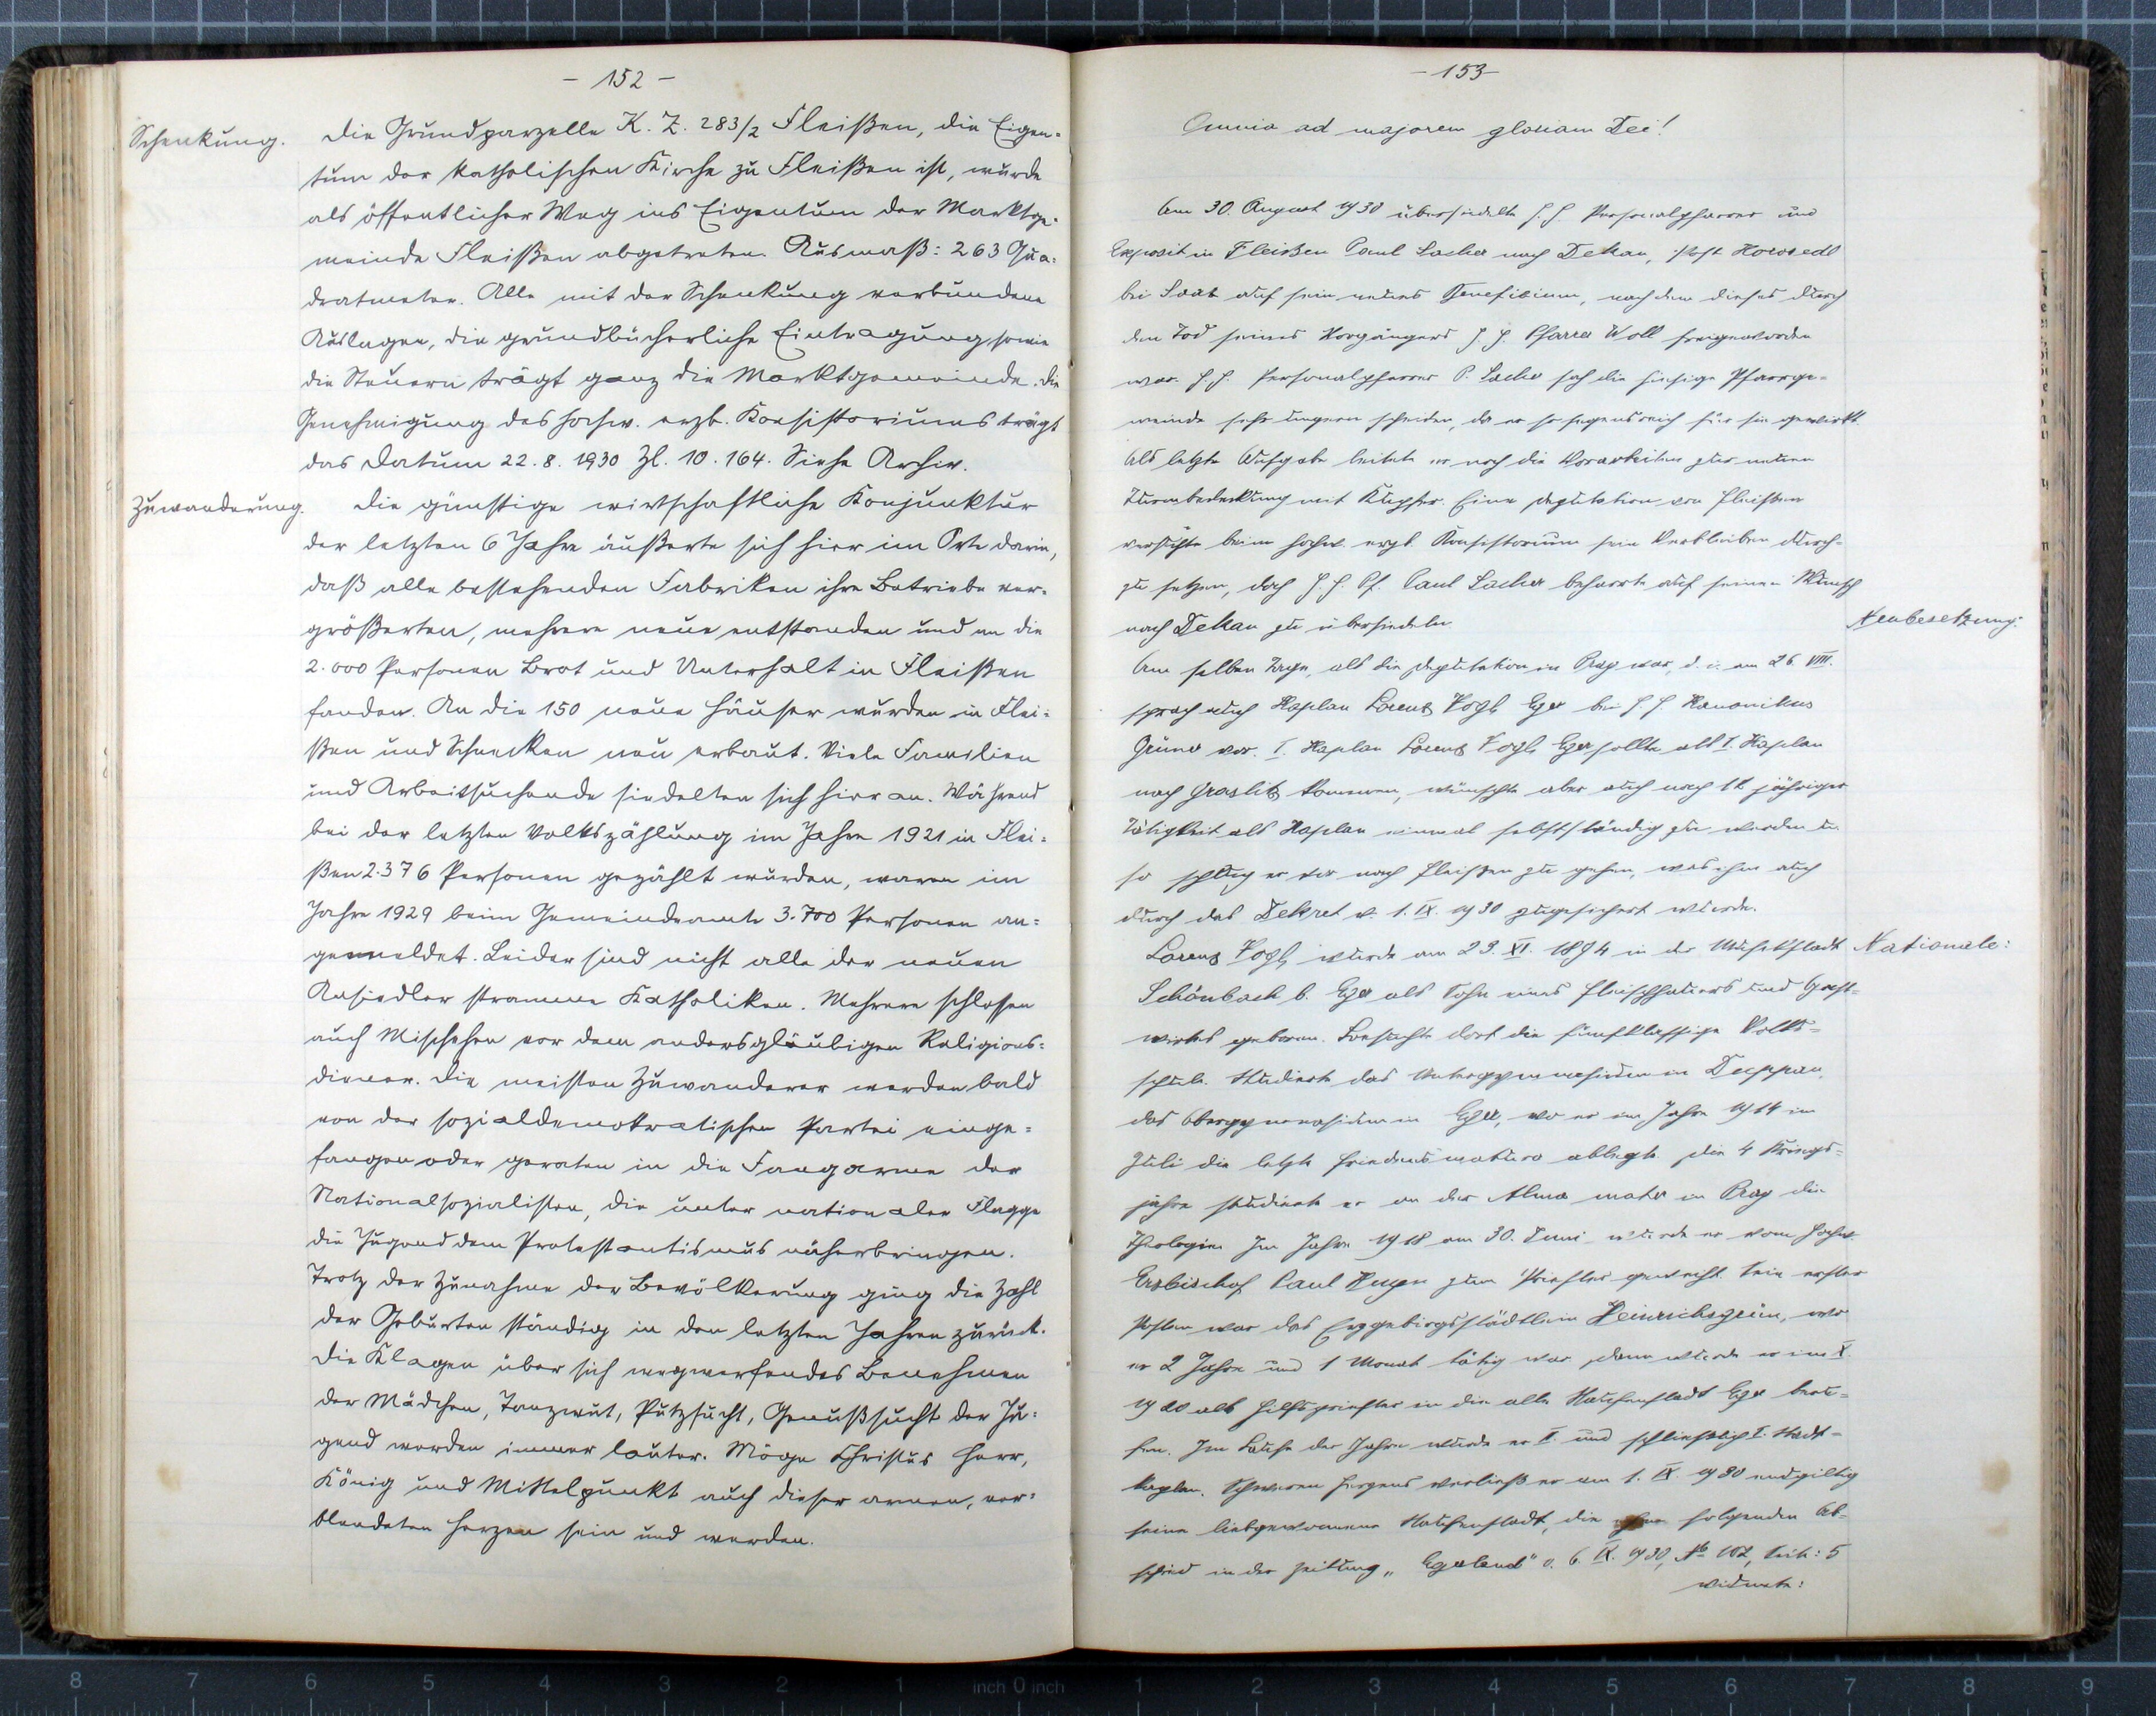 - 152 -
Schenkung.
Die Grundparzelle K. Z. 283/2 Fleißen, die Eigen=
tum der katholischen Kirche zu Fleißen ist, wurde
als öffentlicher Weg ins Eigentum der Marktge=
meinde Fleißen abgetreten. Ausmaß: 263 Qua=
dratmeter. Alle mit der Schenkung verbundene
Auslagen, die grundbücherliche Eintragung, sowie
die Steuern trägt ganz die Marktgemeinde. Die
Genehmigung des hochw. erzb. Konsistoriums trägt
das Datum 22.8.1930 Zl. 10.164. Siehe Archiv.
Zuwanderung.
Die günstige wirtschaftliche Konjunktur
der letzten 6 Jahre äußerte sich hier im Orte darin,
daß alle bestehenden Fabriken ihre Betriebe ver=
größerten, mehrere neue entstanden und an die
2.000 Personen Brot und Unterhalt in Fleißen
fanden. An die 150 neue Häuser wurden in Flei=
ßen und Schnecken neu erbaut. Viele Familien
und Arbeitsuchende siedelten sich hier an. Während
bei der letzten Volkszählung im Jahre 1921 in Flei=
ßen 2.376 Personen gezählt wurden, waren im
Jahre 1929 beim Gemeindeamte 3.700 Personen an=
gemeldet. Leider sind nicht alle der neuen
Ansiedler stramme Katholiken. Mehrere schlossen
auch Mischehen vor dem andersgläubigen Religions=
diener. Die meisten Zuwanderer werden bald
von der sozialdemokratischen Partei einge=
fangen oder geraten in die Fangarme der
Nationalsozialisten, die unter nationaler Flagge
die Jugend dem Protestantismus näherbringen.
Trotz der Zunahme der Bevölkerung ging die Zahl
der Geburten ständig in den letzten Jahren zurück.
Die Klagen über sich wegwerfendes Benehmen
der Mädchen, Tanzwut, Putzsucht, Genußsucht der Ju=
gend werden immer lauter. Möge Christus Herr,
König und Mittelpunkt auch dieser armen, ver=
blendeten Herzen sein und werden.
- 153 -
Omnia ad majorem gloriam Dei!
Am 30. August 1930 übersiedelte H. H. Personalpfarrer und
Exposit in Fleißen Paul Sacher nach Dekau, Post Horosedl
bei Saaz auf sein neues Benefizium, nachdem dieses durch
den Tod seines Vorgängers H. H. Pfarrer Woll freigeworden
war. H. H. Personalpfarrer P. Sacher sah die hiesige Pfarrge=
meinde sehr ungern scheiden, da er so segensreich für sie gewirkt.
Als letzte Aufgabe leitete er noch die Vorarbeiten zur neuen
Turmbedeckung mit Kupfer. Eine Deputation von Fleißen
versuchte beim hochw. erzb. Konsistorium sein Verbleiben durch=
zu setzen, doch H. H. Pf. Paul Sacher beharrte auf seinen Wunsch
nach Dekau zu übersiedeln.
Neubesetzung:
Am selben Tage, als die Deputation in Prag war, d. i. am 26. VIII.
sprach auch Kaplan Lorenz Vogl, Eger bei H. H. Kanonikus
Grüner vor. I. Kaplan Lorenz Vogl, Eger sollte als I. Kaplan
nach Graslitz kommen, wünschte aber auch nach 12 jähriger
Tätigkeit als Kaplan einmal selbstständig zu werden u.
so schlug er vor nach Fleißen zu gehen, was ihm auch
durch das Dekret v. 1. IX. 1930 zugesichert wurde.
Nationale:
Lorenz Vogl, wurde am 23. XI. 1894 in der Musikstadt
Schönbach b. Eger als Sohn eines Fleischhauers und Gast=
wirtes geboren. Besuchte dort die fünfklassige Volks=
schule. Studierte das Untergymnasium in Duppau,
das Obergymnasium in Eger, wo er im Jahre 1914 im
Juli die letzte Friedensmatura ablegte. Die 4 Kriegs=
jahre studierte er an der Alma mater in Prag die
Theologie. Im Jahre 1918 am 30. Juni wurde er vom hochw.
Erzbischof Paul Huyn zum Priester geweiht. Sein erster
Posten war das Erzgebirgsstädtlein Heinrichsgrün, wo
er 2 Jahre und 1 Monat tätig war, dann wurde er im X.
1920 als Hilfspriester in die alte Stauferstadt Eger beru=
fen. Im Laufe der Jahre wurde er II. und schließlich I. Stadt=
kaplan. Schweren Herzens verließ er am 1. IX. 1930 endgiltig
seine liebgewonnene Stauferstadt, die folgenden Ab=
schied in der Zeitung „Egerland" v. 6. IX. 1930, No 102, Seite: 5
widmete: